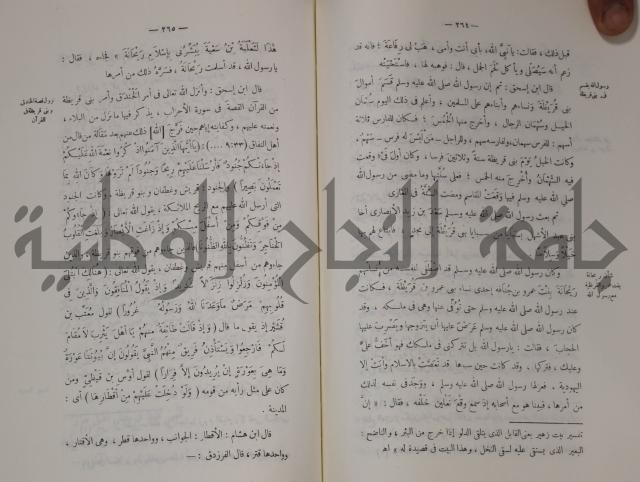 — ٢٦٤ —
قبل ذلك ، فقالت : يا نبى الله ، بأبى أنت وأمى ، هب لى رفاعة ؛ فانه قد
زعم أنه سيصلى ويأكل لحم الجمل ، قال : فوهبه لها ، فاستحيته
رسول الله يقسم فى بنى قريظة
قال ابن إسحق : ثم إن رسول الله صلى الله عليه وسلم قسم أموال
بنى قريظة ونساءهم وأبناءهم على المسلمين ، وأعلم فى ذلك اليوم سهمان
الخيل وسهمان الرجال ، وأخرج منها الخمس ؛ فكان للفارس ثلاثة
أسهم : للفرس سهمان ولفارسه سهم ، وللراجل — من ليس له فرس — سهم ،
وكانت الخيل يوم بنى قريظة ستة وثلاثين فرسا ، وكان أول فىء وقعت
فيه السهمان وأخرج منه الخمس ؛ فعلى سنتها وما مضى من رسول الله
صلى الله عليه وسلم فيها وقعت المقاسم ومضت السنة فى المغازى
ثم بعث رسول الله صلى الله عليه وسلم سعد بن زيد الأنصارى أخا
بنى عبد الأشهل بسبايا من سبايا بنى قريظة إلى نجد ، فابتاع لهم بها
خيلا وسلاحا
وكان رسول الله صلى الله عليه وسلم قد اصطفى لنفسه من نسائهم
ريحانة بنت عمرو بن خنافة إحدى نساء بنى عمرو بن قريظة ، فكانت
عند رسول الله صلى الله عليه وسلم حتى توفى عنها وهى فى ملكه ، وقد
كان رسول الله صلى الله عليه وسلم عرض عليها أن يتزوجها ويضرب عليها
الحجاب ، فقالت : يا رسول الله بل تتركنى فى ملكك فهو أخف على
وعليك ، فتركها ، وقد كانت حين سباها قد تعصت بالاسلام وأبت إلا
اليهودية ، فعزلها رسول الله صلى الله عليه وسلم ، ووجد فى نفسه لذلك
من أمرها ، فبينا هو مع أصحابه إذ سمع وقع نعلين خلفه ، فقال : « إن
تفسير بيت زهير يعنى القابل الذى يتلقى الدلو إذا خرج من البئر ، والناضح :
البعير الذى يستقى عليه لسقى النخل ، وهذا البيت فى قصيدة له » اه
— ٢٦٥ —
هذا لثعلبة بن سعية يبشرنى بإسلام ريحانة » فجاءه ، فقال :
يا رسول الله ، قد أسلمت ريحانة ، فسره ذلك من أمرها
قال ابن إسحق : وأنزل الله تعالى فى أمر الخندق وأمر بنى قريظة
من القرآن القصة فى سورة الأحزاب ، يذكر فيها ما نزل من البلاء ،
ونعمته عليهم ، وكفايته إياهم حين فرج [ الله ] ذلك عنهم بعد مقالة من قال من
أهل النفاق (٩:٣٣ : ياأيها الذين آمنوا اذكروا نعمة الله عليكم
إذ جاءتكم جنود فأرسلنا عليهم ريحا وجنودا لم تروها وكان الله بما
تعملون بصيرا ) والجنود : قريش وغطفان وبنو قريظة ، وكانت الجنود
التى أرسل الله عليهم مع الريح الملائكة ، يقول الله تعالى : ( إذ جاءوكم
من فوقكم ومن أسفل منكم وإذ زاغت الأبصار وبلغت القلوب
الحناجر وتظنون بالله الظنونا ) فالذين جاءوهم من فوقهم بنو قريظة ، والذين
جاءوهم من أسفل منهم قريش وغطفان ، يقول الله تعالى : ( هنالك ابتلى
المؤمنون وزلزلوا زلزالا شديدا وإذ يقول المنافقون والذين فى
قلوبهم مرض ما وعدنا الله ورسوله إلا غرورا ) لقول معتب بن
قشير إذ يقول ما قال ( وإذ قالت طائفة منهم يا أهل يثرب لا مقام
لكم فارجعوا ويستأذن فريق منهم النبى يقولون إن بيوتنا عورة
وما هى بعورة إن يريدون إلا فرارا ) لقول أوس بن قيظى ومن
كان على مثل رأيه من قومه ( ولو دخلت عليهم من أقطارها ) أى :
المدينة .
قال ابن هشام : الأقطار : الجوانب ، وواحدها قطر ، وهى الأقتار ،
وواحدها قتر ، قال الفرزدق : —
جامعة النجاح الوطنية